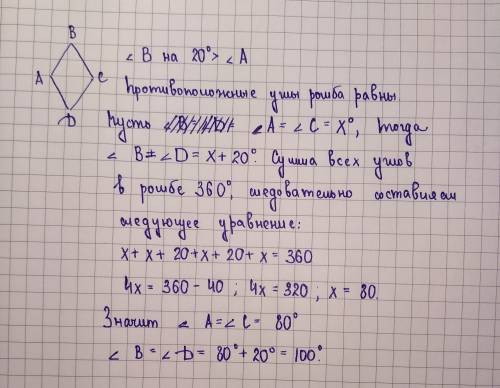 B
A
C
D
∠ B на 20° > ∠ A
Противоположные углы ромба равны.
Пусть ∠A = ∠C = X°, тогда
∠ B = ∠D = X + 20°. Сумма всех углов
в ромбе 360°, следовательно составляем
следующее уравнение:
x + x + 20 + x + 20 + x = 360
4x = 360 - 40 ; 4x = 320 ; x = 80.
Значит ∠ A = ∠ C = 80°
∠ B = ∠ D = 80° + 20° = 100°.